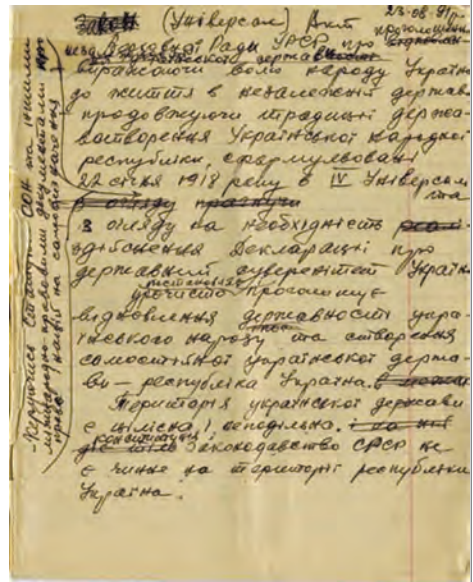 Закон (Універсал) Акт 23-08-91р.
проголошення
незалежності Верховної Ради УРСР про
української держав
Виражаючи волю народу України
до життя в незалежній державі
продовжуючи традиції держа-
вотворення Української народної
республіки, сформульовані
22 січня 1918 року в IV Універсалі
та
з огляду
з огляду на необхідність
здійснення Декларації про
державний суверенітет України
урочисто проголошує
відновлення державності укра-
їнського народу та створення
самостійної української держа-
ви — республіка Україна.
Територія української держави
є цілісна і неподільна.
конституція і
законодавство СРСР не
є чинне на території республіки
Україна.
- Керуючись Статутом ООН та іншими
міжнародно-правовими документами про
право націй на самовизначення